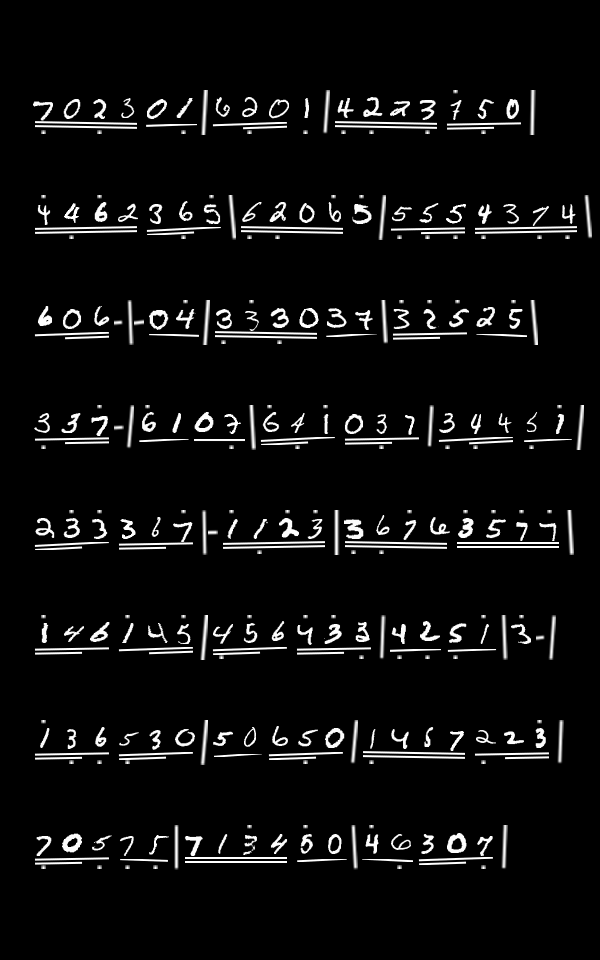 702301|6201|4223750
4462365|62065|5554374
606-|-04|333037|32525
337-|6107|641037|34451
233367|-1123|36763577
146145|456433|4251|3-
136530|50650|1457223
70575|713450|46307